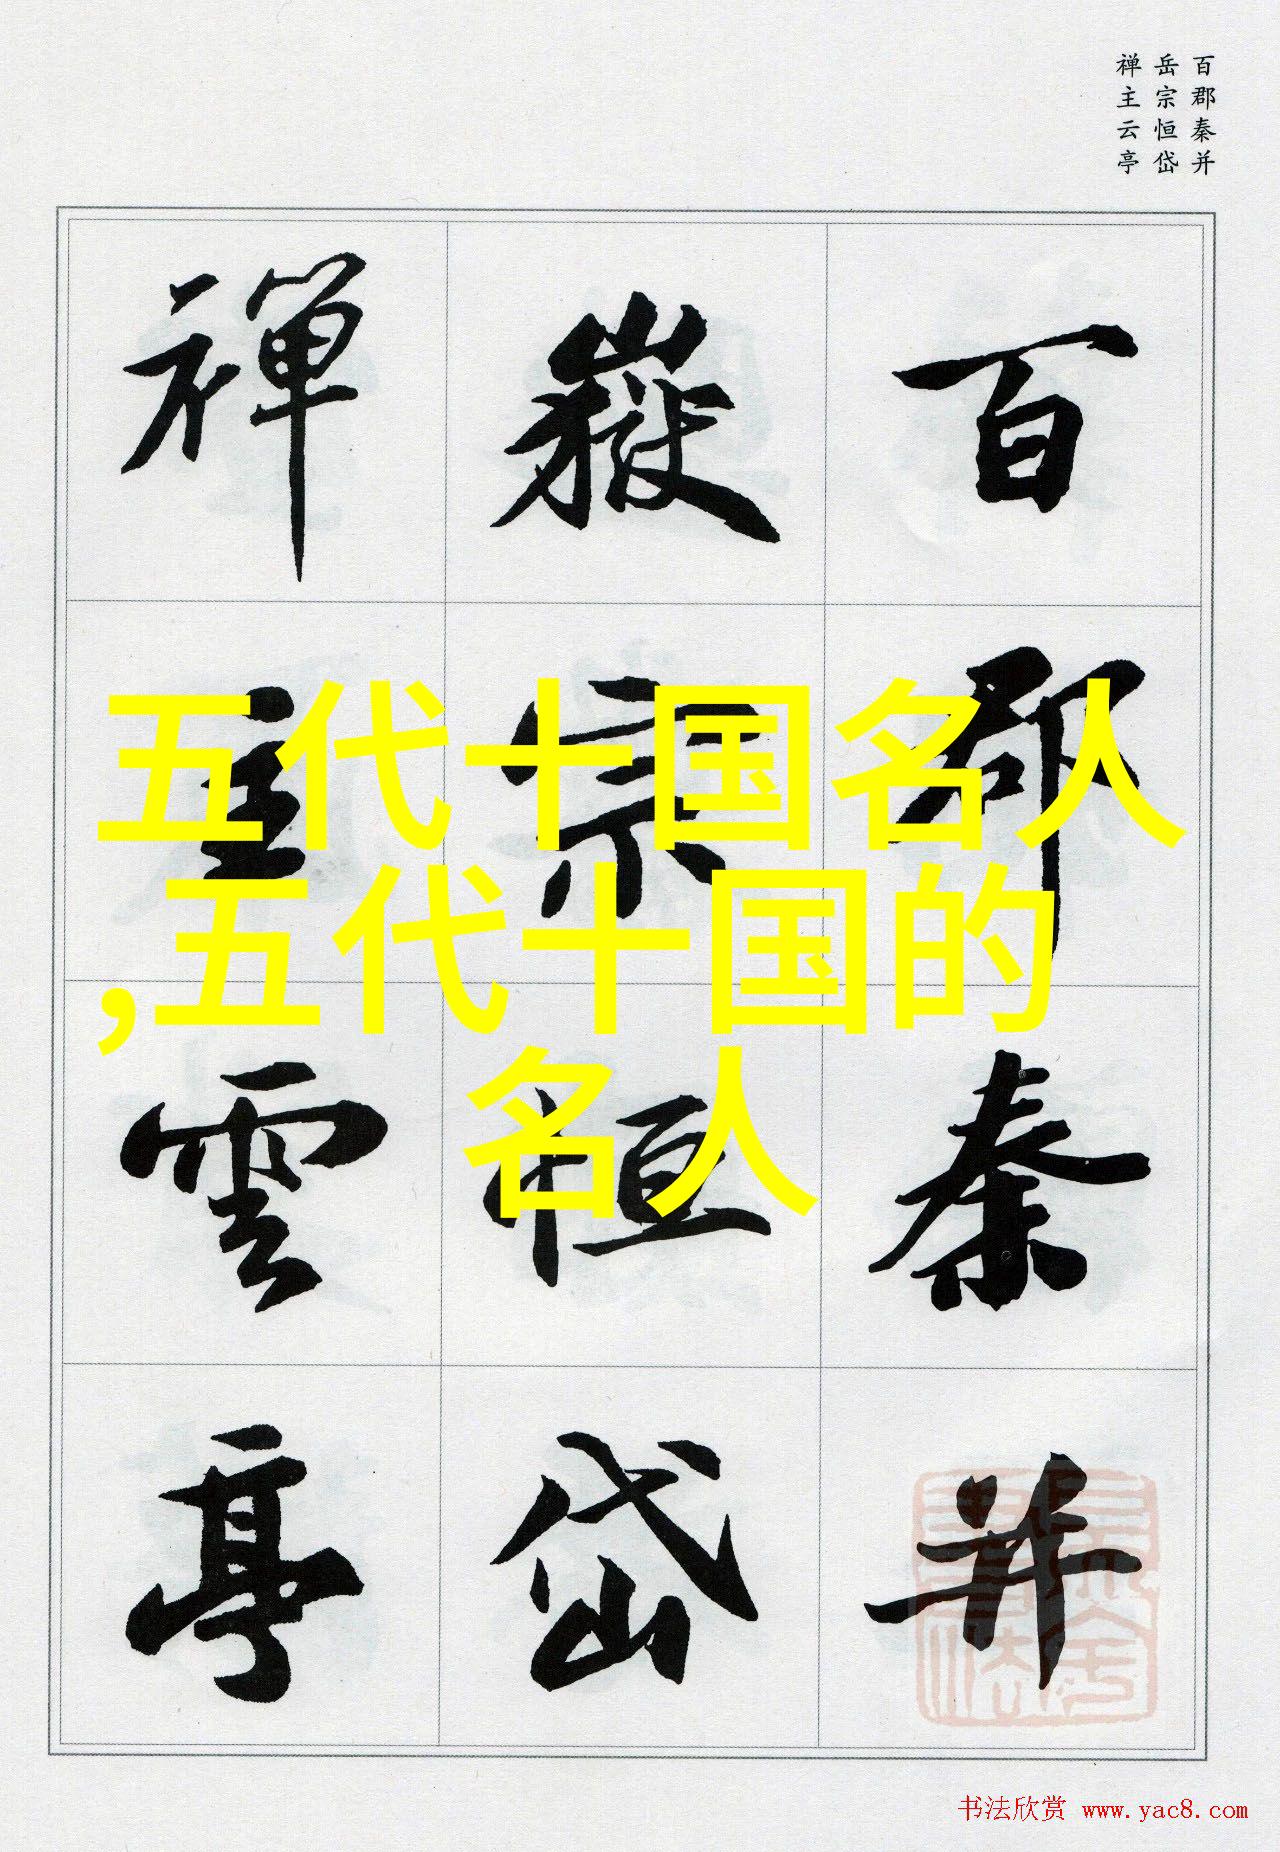 百郡秦并
岳宗恒岱
禅主云亭
百郡秦并
嶽宗恒岱
禅主雲亭
五代十国名人
,五代十国的
名人
书法欣赏 www.yac8.com